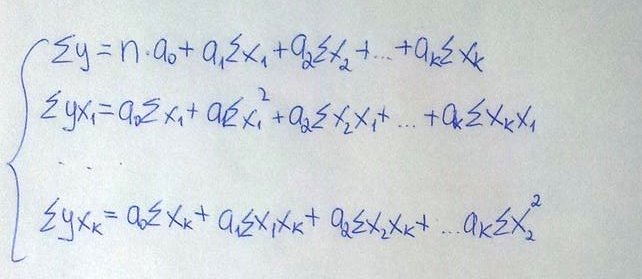 Σy = n·a₀ + a₁Σx₁ + a₂Σx₂ + ... + aₖΣxₖ
Σyx₁ = a₀Σx₁ + a₁Σx₁² + a₂Σx₂x₁ + ... + aₖΣxₖx₁
. . .
Σyxₖ = a₀Σxₖ + a₁Σx₁xₖ + a₂Σx₂xₖ + ... aₖΣx₂²